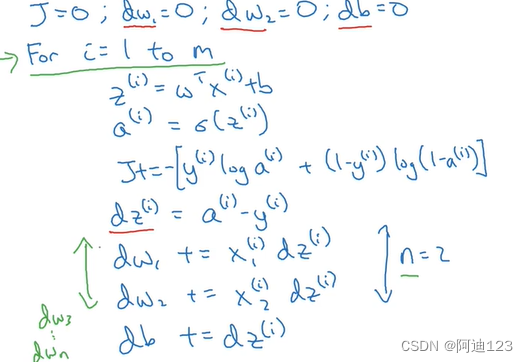 J=0 ; dw₁=0 ; dw₂=0 ; db=0
→ For i=1 to m
z⁽ⁱ⁾ = wᵀx⁽ⁱ⁾+b
a⁽ⁱ⁾ = σ(z⁽ⁱ⁾)
J+=-[y⁽ⁱ⁾ log a⁽ⁱ⁾ + (1-y⁽ⁱ⁾) log(1-a⁽ⁱ⁾)]
dz⁽ⁱ⁾ = a⁽ⁱ⁾-y⁽ⁱ⁾
dw₁ += x₁⁽ⁱ⁾ dz⁽ⁱ⁾
n=2
dw₂ += x₂⁽ⁱ⁾ dz⁽ⁱ⁾
dw₃
⋮
dwₙ
db += dz⁽ⁱ⁾
CSDN @阿迪123